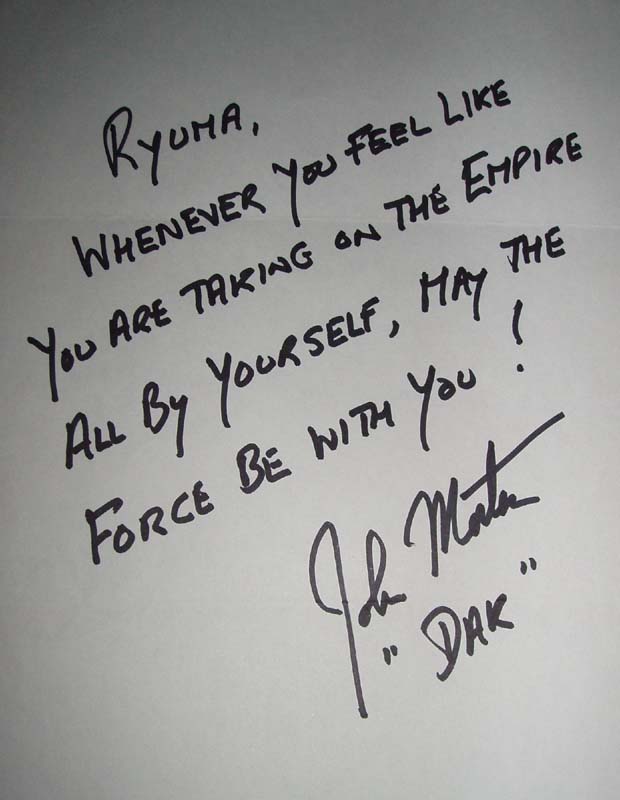 Ryuma,
Whenever you feel like
you are taking on the Empire
all by yourself, may the
Force be with you!
John Morton
"Dak"